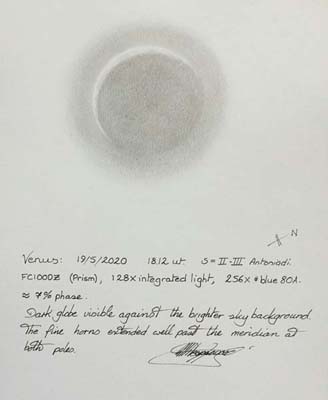 N
Venus: 19/5/2020 18.12 ut. S = II-III Antoniadi.
FC100DZ (Prism), 128x integrated light, 256x # blue 80A.
≈ 7% phase.
Dark globe visible against the brighter sky background.
The fine horns extended well past the meridian at
both poles.